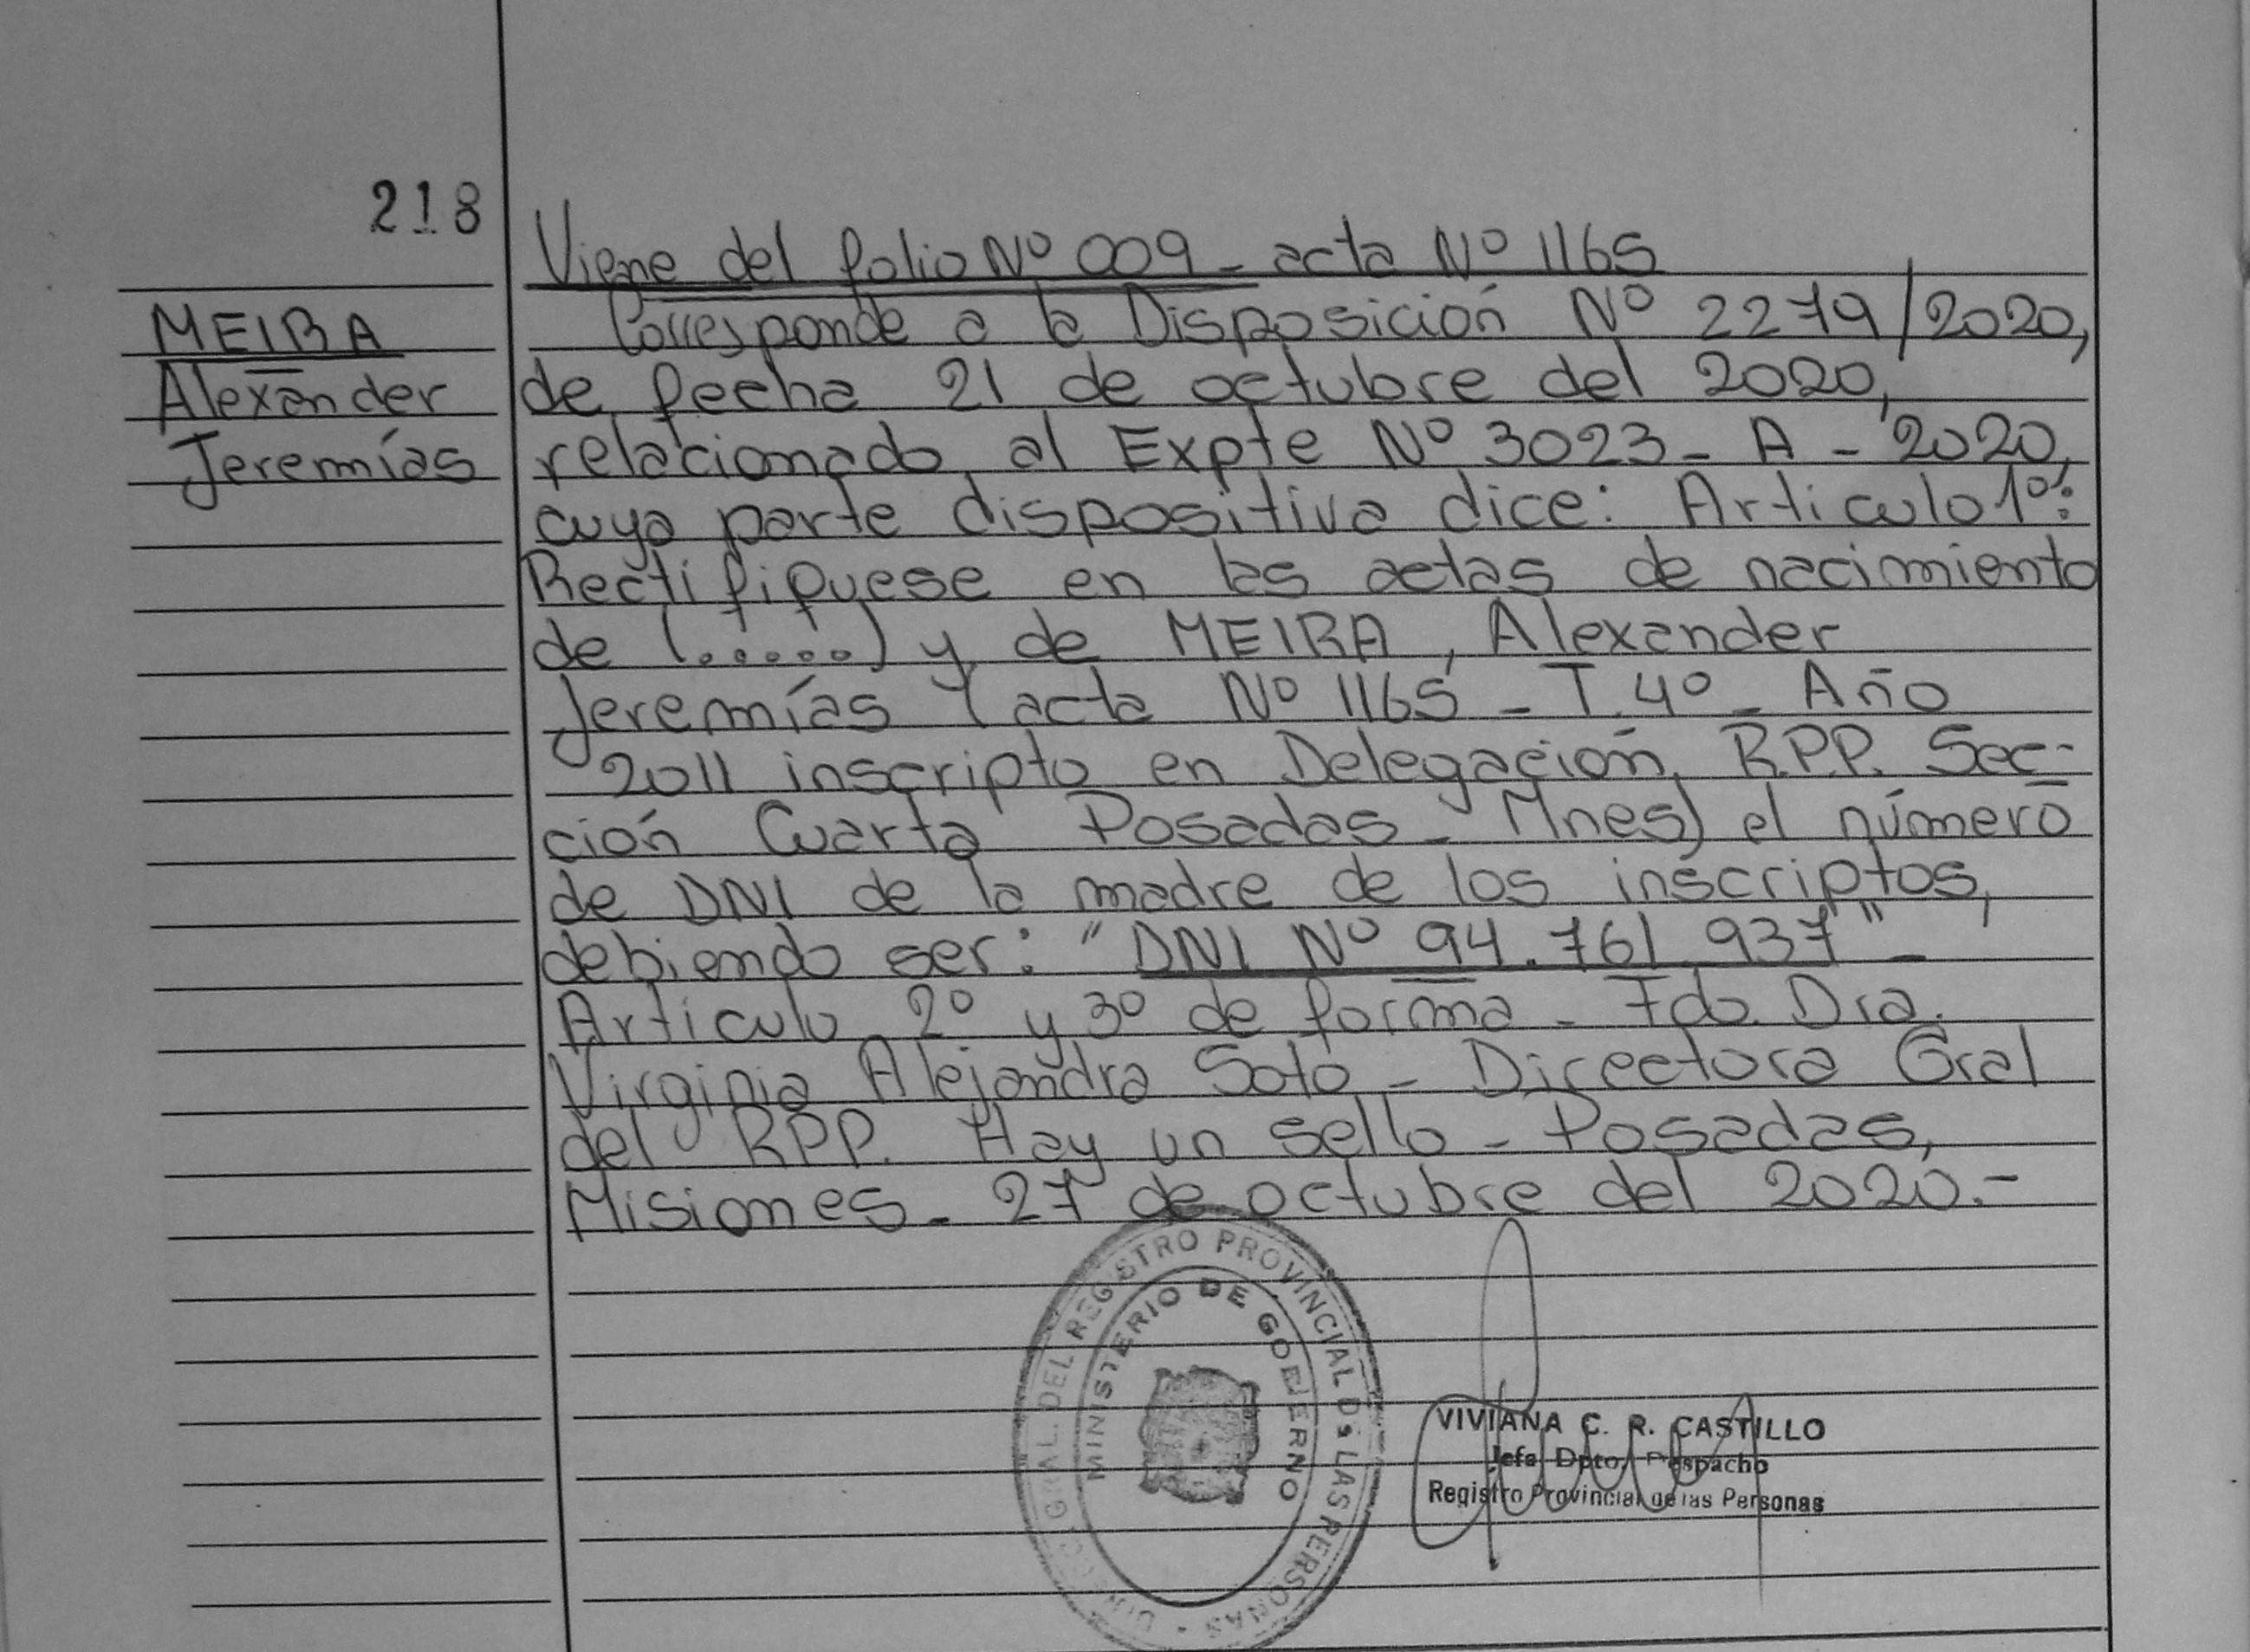 218
Viene del folio Nº 009 - acta Nº 1165
MEIRA
Alexander
Jeremías
Corresponde a la Disposición Nº 2279/2020,
de fecha 21 de octubre del 2020,
relacionado al Expte Nº 3023 - A - 2020,
cuya parte dispositiva dice: Articulo 1º:
Rectifiquese en las actas de nacimiento
de (......) y de MEIRA, Alexander
Jeremías (acta Nº 1165 - T. 4º - Año
2011 inscripto en Delegación R.P.P. Sec-
ción Cuarta Posadas - Mnes) el número
de DNI de la madre de los inscriptos,
debiendo ser: "DNI Nº 94.761.937" -
Articulo 2º y 3º de forma - Fdo. Dra.
Virginia Alejandra Soto - Directora Gral
del RPP. Hay un sello - Posadas,
Misiones - 27 de octubre del 2020.-
GRAL. DEL REGISTRO PROVINCIAL DE LAS PERSONAS
MINISTERIO DE GOBIERNO
VIVIANA C. R. CASTILLO
Jefa Dpto. Despacho
Registro Provincial de las Personas